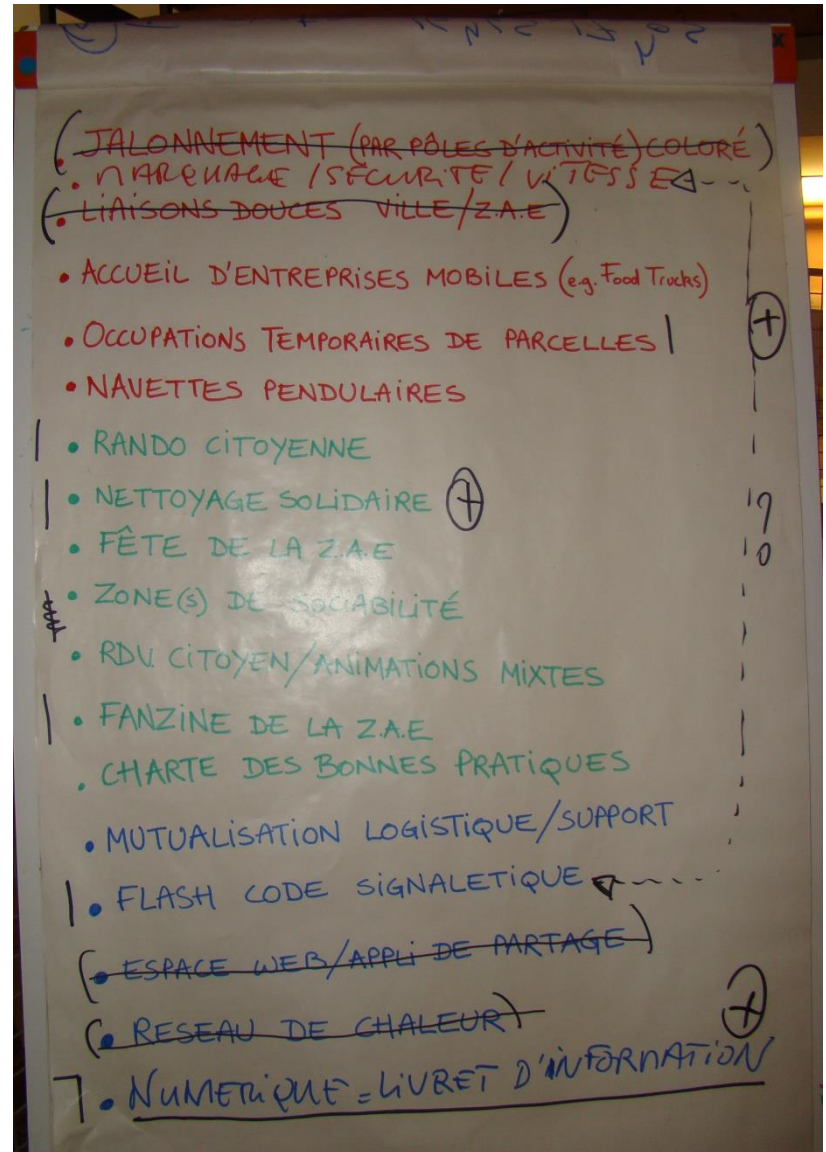 (• JALONNEMENT (PAR PÔLES D'ACTIVITÉ) COLORÉ)
• MARQUAGE / SÉCURITÉ / VITESSE
(• LIAISONS DOUCES VILLE/Z.A.E)
• ACCUEIL D'ENTREPRISES MOBILES (e.g. Food Trucks)
• OCCUPATIONS TEMPORAIRES DE PARCELLES | +
• NAVETTES PENDULAIRES
| • RANDO CITOYENNE
| • NETTOYAGE SOLIDAIRE +
• FÊTE DE LA Z.A.E
• ZONE(S) DE SOCIABILITÉ
• RDV. CITOYEN/ANIMATIONS MIXTES
| • FANZINE DE LA Z.A.E
• CHARTE DES BONNES PRATIQUES
• MUTUALISATION LOGISTIQUE/SUPPORT
| • FLASH CODE SIGNALETIQUE
(• ESPACE WEB/APPLI DE PARTAGE)
(• RESEAU DE CHALEUR) +
• NUMERIQUE = LIVRET D'INFORMATION